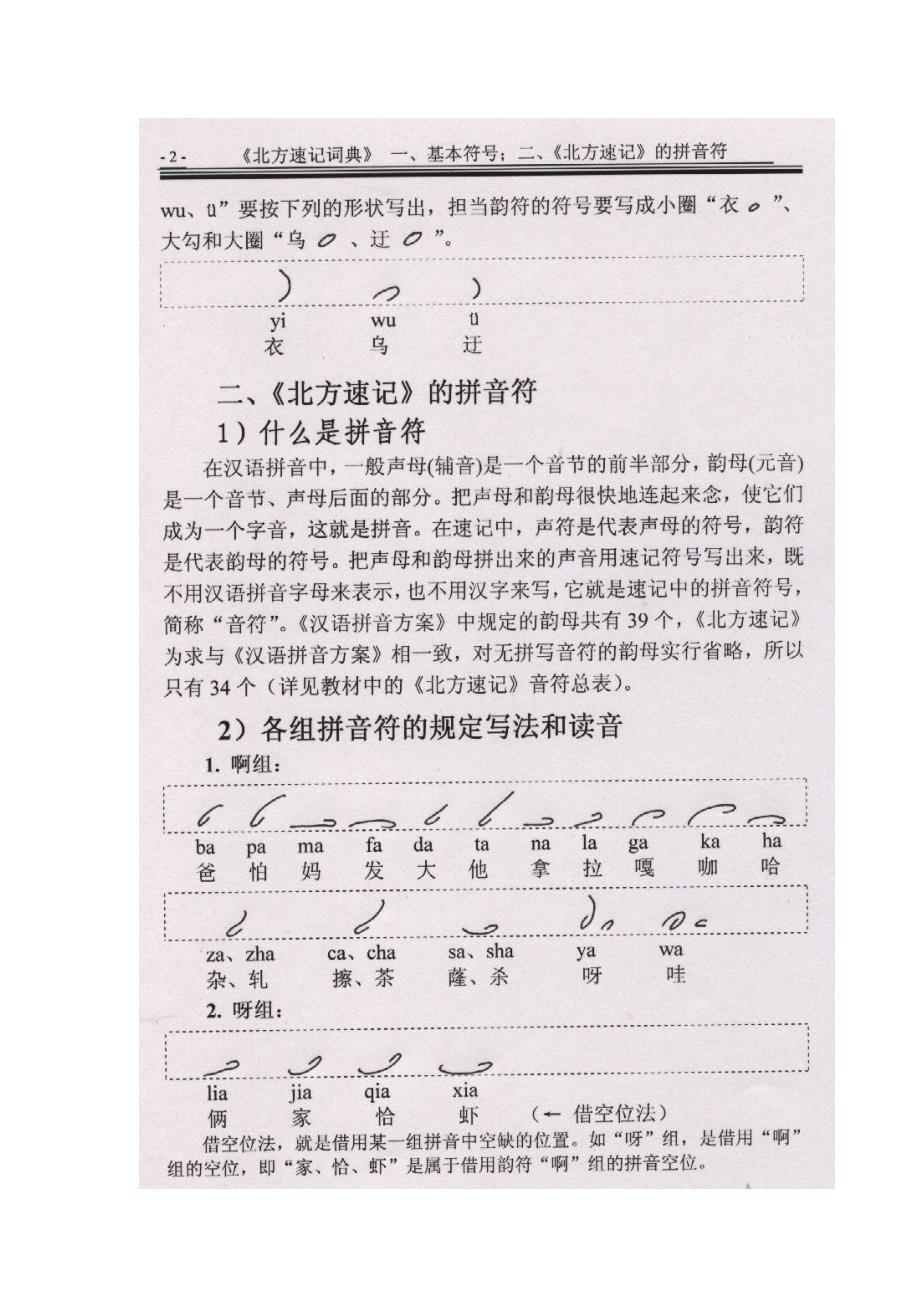 - 2 - 《北方速记词典》 一、基本符号；二、《北方速记》的拼音符
wu、ü”要按下列的形状写出，担当韵符的符号要写成小圈“衣 ”、
大勾和大圈“乌 、迂 ”。
yi wu ü
衣 乌 迂
二、《北方速记》的拼音符
1）什么是拼音符
在汉语拼音中，一般声母(辅音)是一个音节的前半部分，韵母(元音)
是一个音节、声母后面的部分。把声母和韵母很快地连起来念，使它们
成为一个字音，这就是拼音。在速记中，声符是代表声母的符号，韵符
是代表韵母的符号。把声母和韵母拼出来的声音用速记符号写出来，既
不用汉语拼音字母来表示，也不用汉字来写，它就是速记中的拼音符号，
简称“音符”。《汉语拼音方案》中规定的韵母共有 39 个，《北方速记》
为求与《汉语拼音方案》相一致，对无拼写音符的韵母实行省略，所以
只有 34 个（详见教材中的《北方速记》音符总表）。
2）各组拼音符的规定写法和读音
1. 啊组：
ba pa ma fa da ta na la ga ka ha
爸 怕 妈 发 大 他 拿 拉 嘎 咖 哈
za、zha ca、cha sa、sha ya wa
杂、轧 擦、茶 萨、杀 呀 哇
2. 呀组：
lia jia qia xia
俩 家 恰 虾 （← 借空位法）
借空位法，就是借用某一组拼音中空缺的位置。如“呀”组，是借用“啊”
组的空位，即“家、恰、虾”是属于借用韵符“啊”组的拼音空位。